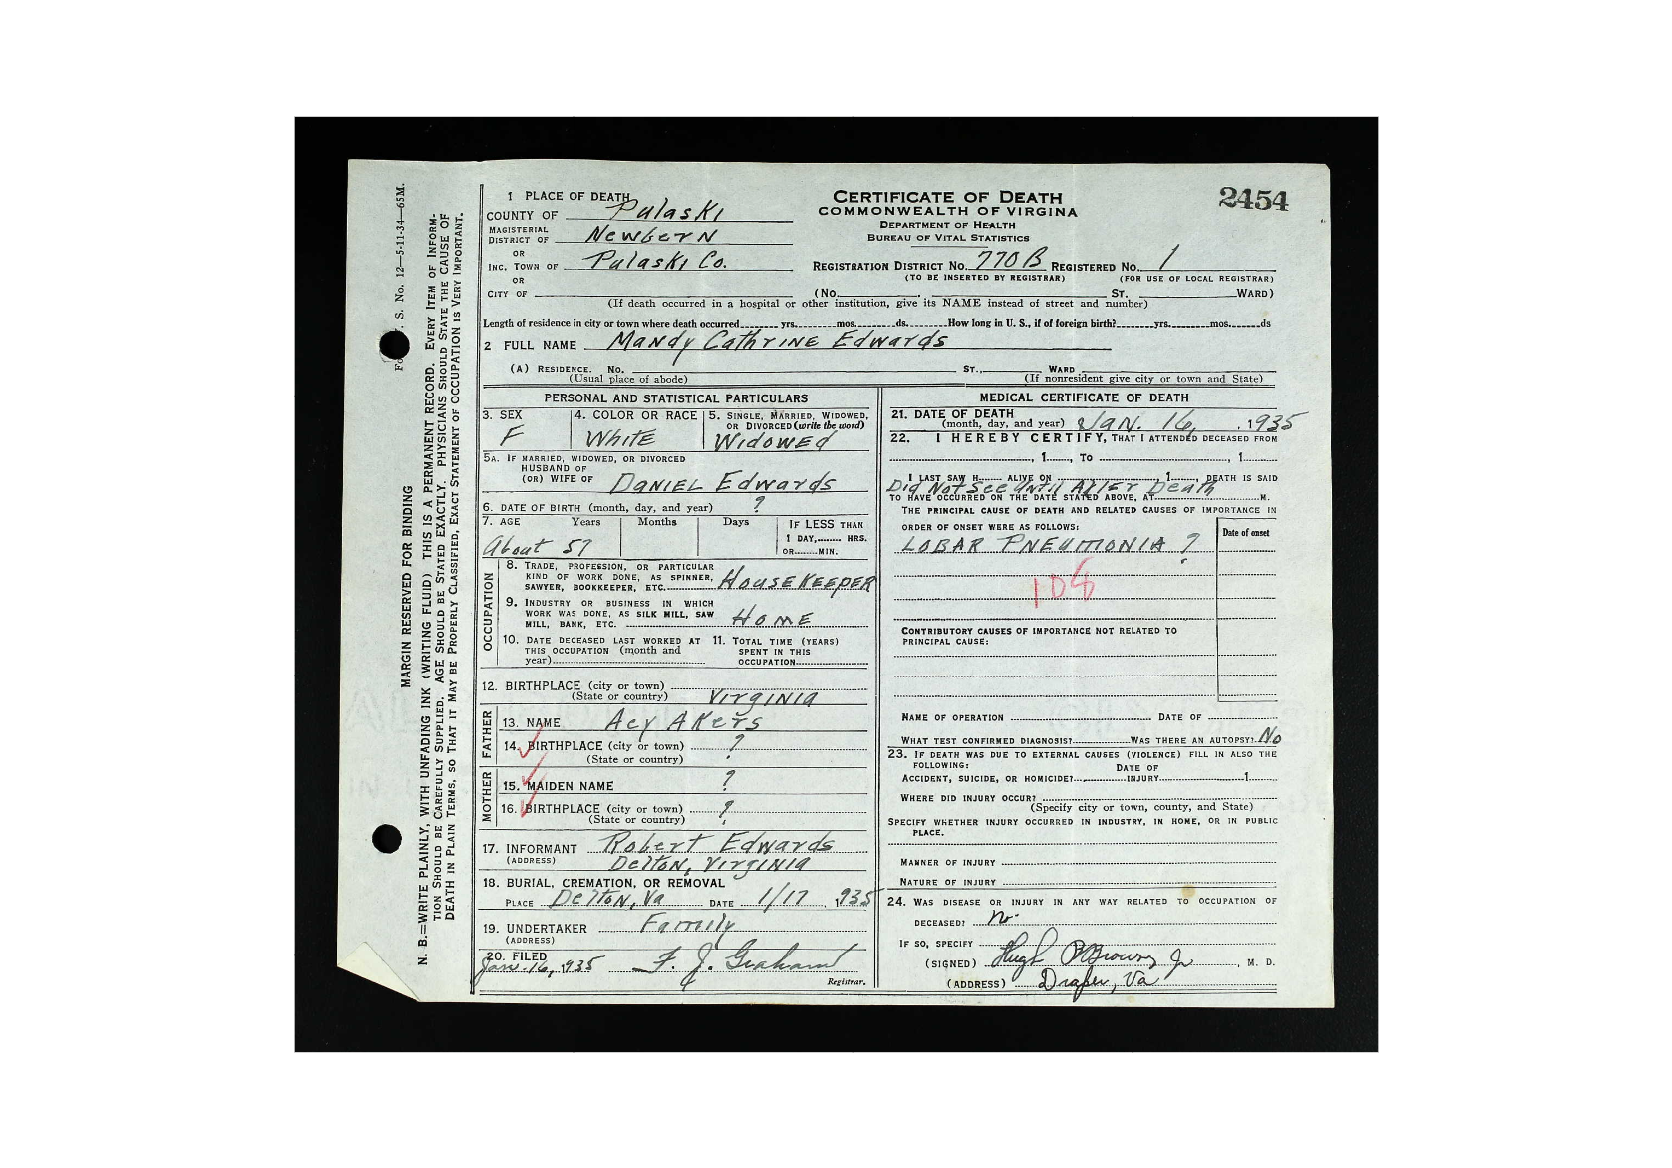 2454
CERTIFICATE OF DEATH
COMMONWEALTH OF VIRGINIA
DEPARTMENT OF HEALTH
BUREAU OF VITAL STATISTICS
1 PLACE OF DEATH
COUNTY OF Pulaski
MAGISTERIAL DISTRICT OF Newbern
OR
INC. TOWN OF Pulaski Co.
REGISTRATION DISTRICT No. 770B REGISTERED No. 1
(TO BE INSERTED BY REGISTRAR) (FOR USE OF LOCAL REGISTRAR)
OR
CITY OF (No. ST. WARD)
(If death occurred in a hospital or other institution, give its NAME instead of street and number)
Length of residence in city or town where death occurred yrs. mos. ds. How long in U. S., if of foreign birth? yrs. mos. ds
2 FULL NAME Mandy Cathrine Edwards
(A) RESIDENCE. No. ST., WARD
(Usual place of abode) (If nonresident give city or town and State)
PERSONAL AND STATISTICAL PARTICULARS
3. SEX F
4. COLOR OR RACE White
5. SINGLE, MARRIED, WIDOWED, OR DIVORCED (write the word) Widowed
5A. IF MARRIED, WIDOWED, OR DIVORCED
HUSBAND OF
(OR) WIFE OF Daniel Edwards
6. DATE OF BIRTH (month, day, and year) ?
7. AGE Years Months Days IF LESS THAN
1 DAY, HRS.
OR MIN.
About 57
OCCUPATION
8. TRADE, PROFESSION, OR PARTICULAR
KIND OF WORK DONE, AS SPINNER,
SAWYER, BOOKKEEPER, ETC. Housekeeper
9. INDUSTRY OR BUSINESS IN WHICH
WORK WAS DONE, AS SILK MILL, SAW
MILL, BANK, ETC. Home
10. DATE DECEASED LAST WORKED AT
THIS OCCUPATION (month and
year)
11. TOTAL TIME (YEARS)
SPENT IN THIS
OCCUPATION
12. BIRTHPLACE (city or town)
(State or country) Virginia
FATHER
13. NAME Acy Akers
14. BIRTHPLACE (city or town) ?
(State or country)
MOTHER
15. MAIDEN NAME ?
16. BIRTHPLACE (city or town) ?
(State or country)
17. INFORMANT Robert Edwards
(ADDRESS) Delton, Virginia
18. BURIAL, CREMATION, OR REMOVAL
PLACE Delton, Va DATE 1/17, 1935
19. UNDERTAKER Family
(ADDRESS)
20. FILED
Jan. 16, 935 F. J. Graham
Registrar.
MEDICAL CERTIFICATE OF DEATH
21. DATE OF DEATH
(month, day, and year) Jan. 16, 1935
22. I HEREBY CERTIFY, THAT I ATTENDED DECEASED FROM
, 1 , TO , 1
I LAST SAW H ALIVE ON 1 , DEATH IS SAID
Did Not See Until After Death
TO HAVE OCCURRED ON THE DATE STATED ABOVE, AT M.
THE PRINCIPAL CAUSE OF DEATH AND RELATED CAUSES OF IMPORTANCE IN
ORDER OF ONSET WERE AS FOLLOWS: Date of onset
LOBAR PNEUMONIA ?
108
CONTRIBUTORY CAUSES OF IMPORTANCE NOT RELATED TO
PRINCIPAL CAUSE:
NAME OF OPERATION DATE OF
WHAT TEST CONFIRMED DIAGNOSIS? WAS THERE AN AUTOPSY? No
23. IF DEATH WAS DUE TO EXTERNAL CAUSES (VIOLENCE) FILL IN ALSO THE
FOLLOWING: DATE OF
ACCIDENT, SUICIDE, OR HOMICIDE? INJURY 1
WHERE DID INJURY OCCUR?
(Specify city or town, county, and State)
SPECIFY WHETHER INJURY OCCURRED IN INDUSTRY, IN HOME, OR IN PUBLIC
PLACE.
MANNER OF INJURY
NATURE OF INJURY
24. WAS DISEASE OR INJURY IN ANY WAY RELATED TO OCCUPATION OF
DECEASED? No.
IF SO, SPECIFY
(SIGNED) Hugh B Brown Jr , M. D.
(ADDRESS) Draper, Va
S. No. 12—5-11-34—65M.
MARGIN RESERVED FOR BINDING
N. B.—WRITE PLAINLY, WITH UNFADING INK (WRITING FLUID) THIS IS A PERMANENT RECORD. EVERY ITEM OF INFORM-
TION SHOULD BE CAREFULLY SUPPLIED. AGE SHOULD BE STATED EXACTLY. PHYSICIANS SHOULD STATE THE CAUSE OF
DEATH IN PLAIN TERMS, SO THAT IT MAY BE PROPERLY CLASSIFIED, EXACT STATEMENT OF OCCUPATION IS VERY IMPORTANT.